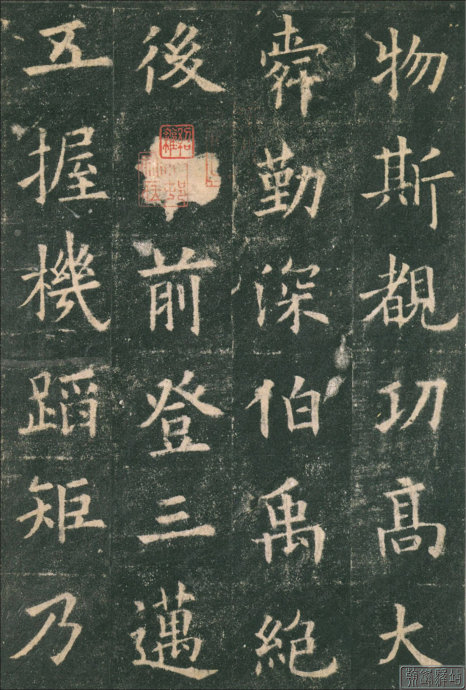 物斯覩功高大
舜勤深伯禹絶
後前登三邁
五握機蹈矩乃